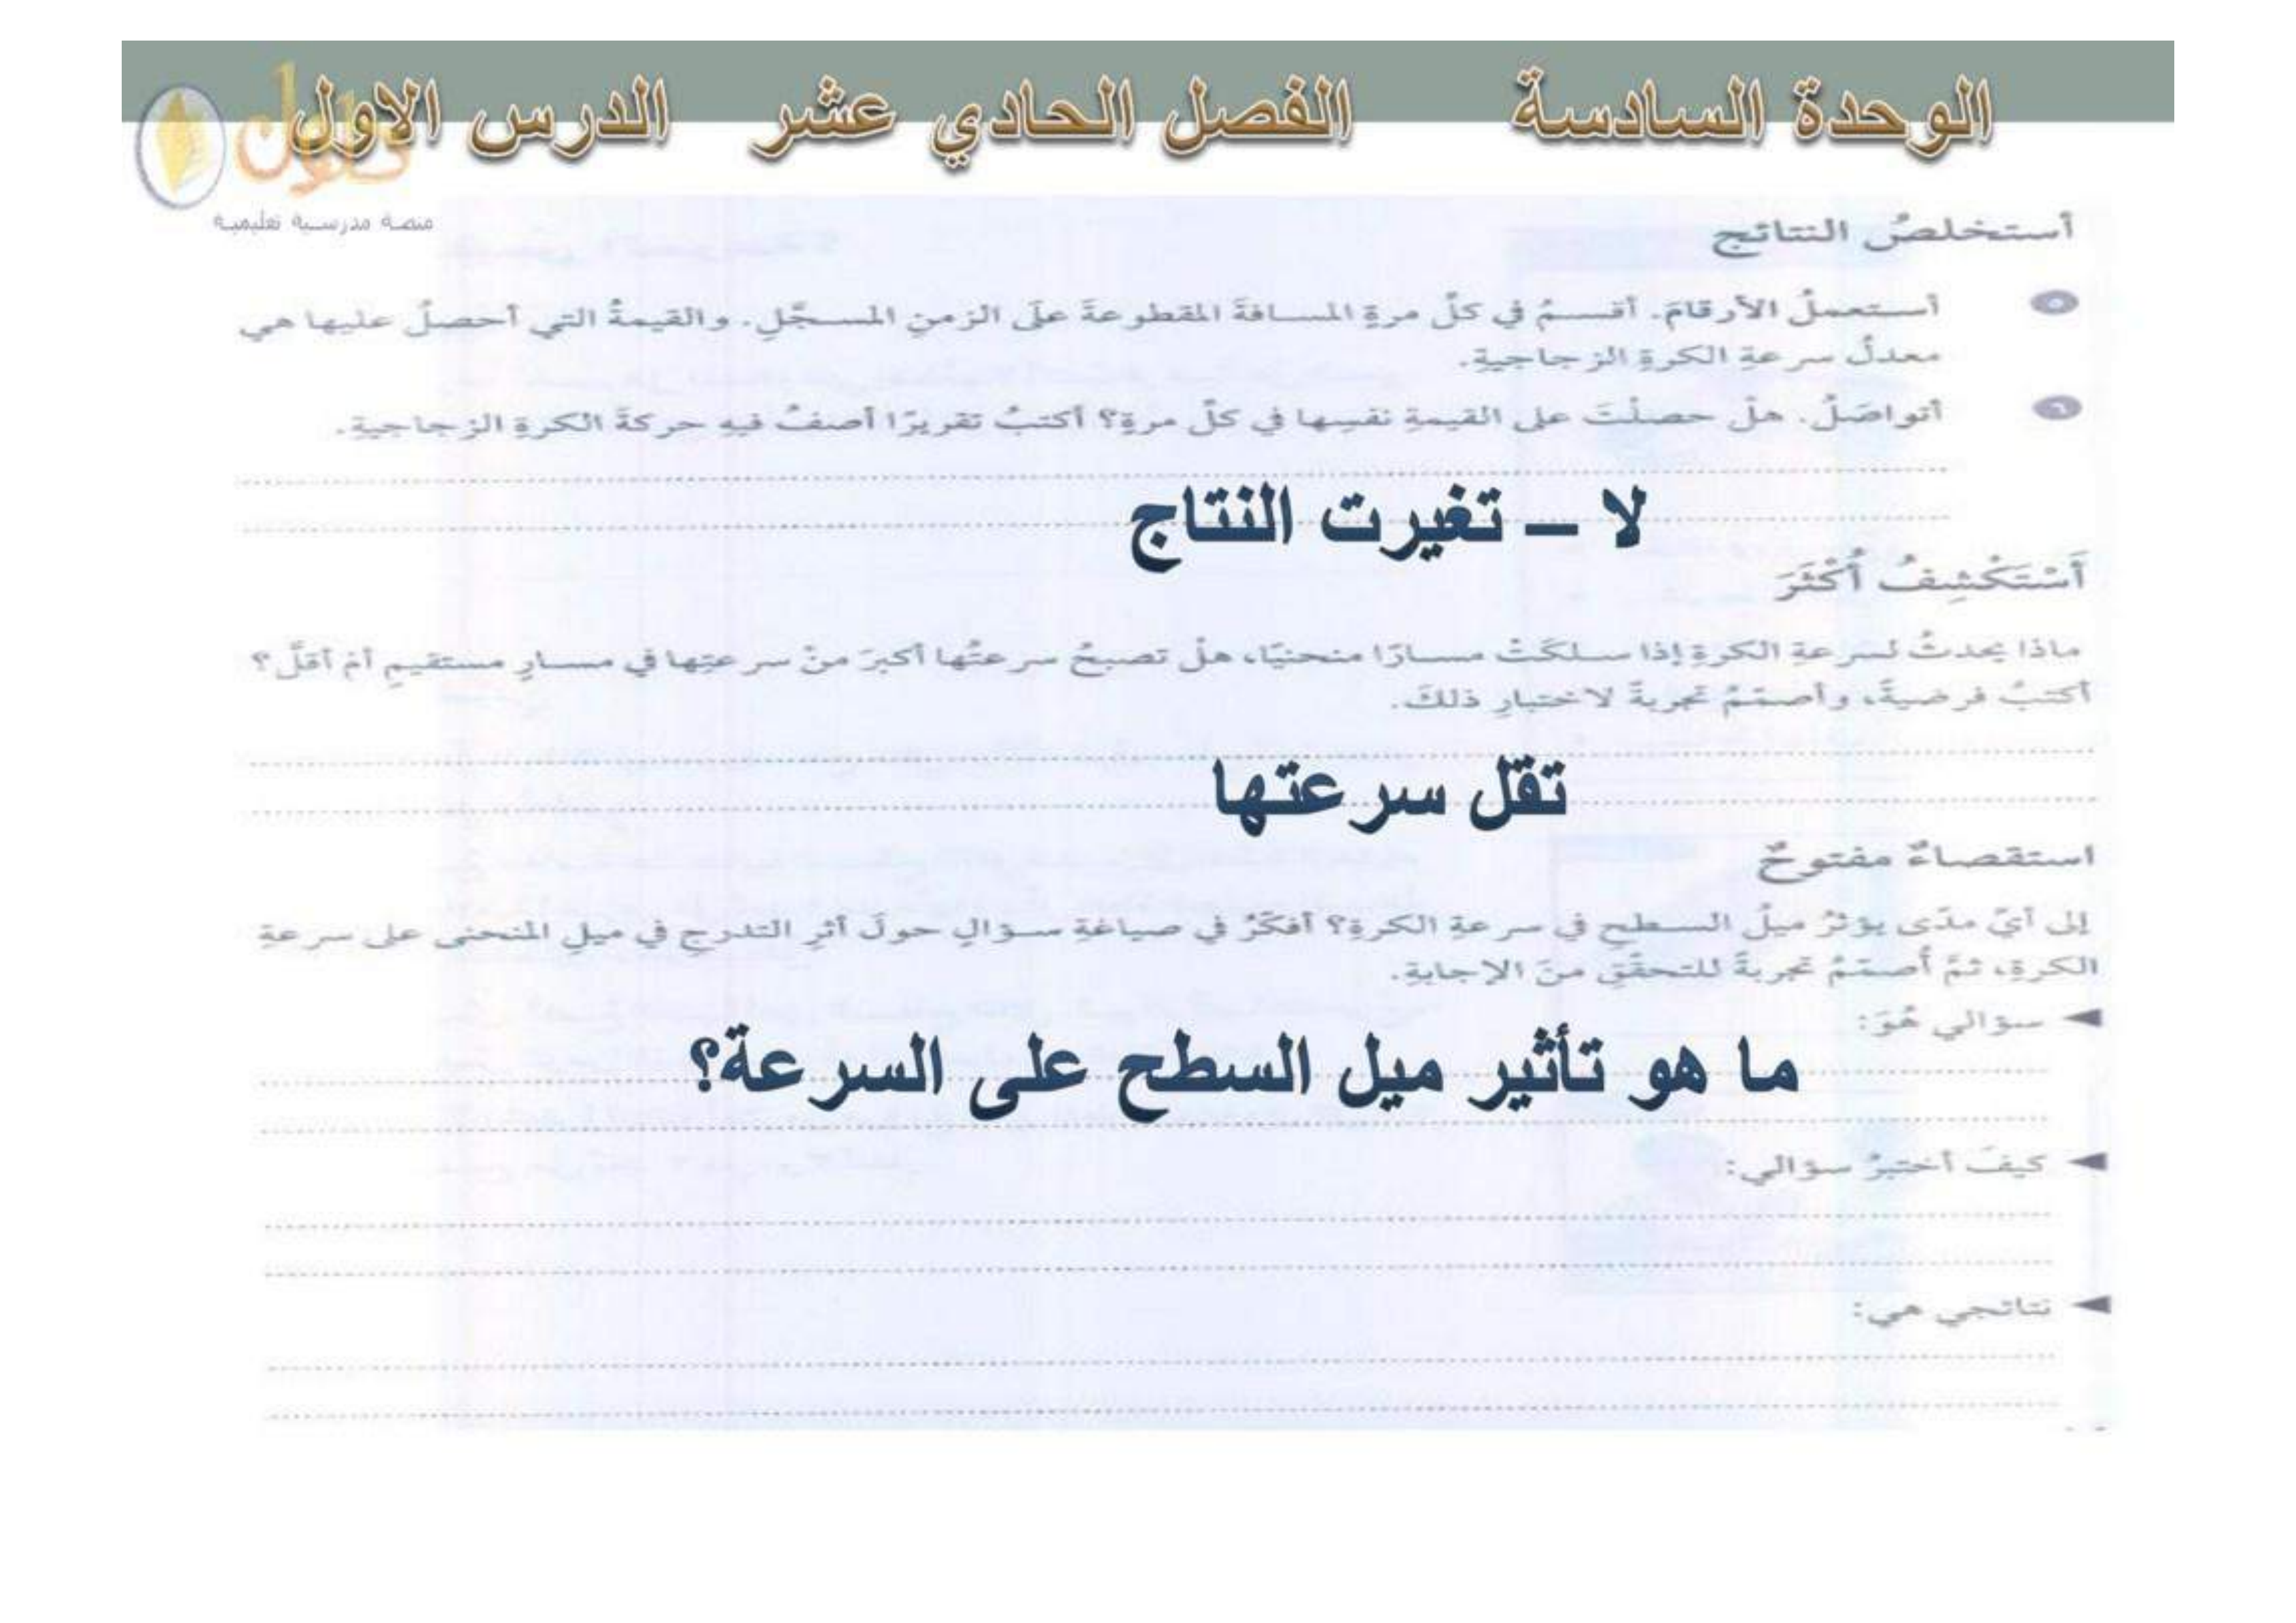 الوحدة السادسة الفصل الحادي عشر الدرس الاول
حلول
منصة مدرسية تعليمية
أستخلصُ النتائج
٥ أستعملُ الأرقامَ. أقسمُ في كلِّ مرةٍ المسافةَ المقطوعةَ على الزمنِ المسجَّلِ. والقيمةُ التي أحصلُ عليها هي
معدلُ سرعةِ الكرةِ الزجاجيةِ.
٦ أتواصَلُ. هلْ حصلْتَ على القيمةِ نفسِها في كلِّ مرةٍ؟ أكتبُ تقريرًا أصفُ فيهِ حركةَ الكرةِ الزجاجيةِ.
لا – تغيرت النتاج
أَسْتَكْشِفُ أَكْثَرَ
ماذا يحدثُ لسرعةِ الكرةِ إذا سلكَتْ مسارًا منحنيًا، هلْ تصبحُ سرعتُها أكبرَ منْ سرعتِها في مسارٍ مستقيمٍ أمْ أقلَّ؟
أكتبُ فرضيةً، وأصمّمُ تجربةً لاختبارِ ذلكَ.
تقل سرعتها
استقصاءٌ مفتوحٌ
إلى أيِّ مدًى يؤثرُ ميلُ السطحِ في سرعةِ الكرةِ؟ أفكّرُ في صياغةِ سؤالٍ حولَ أثرِ التدرجِ في ميلِ المنحنى على سرعةِ
الكرةِ، ثمَّ أُصمّمُ تجربةً للتحقّقِ منَ الإجابةِ.
◄ سؤالي هُوَ:
ما هو تأثير ميل السطح على السرعة؟
◄ كيفَ أختبرُ سؤالي:
◄ نتائجي هي: